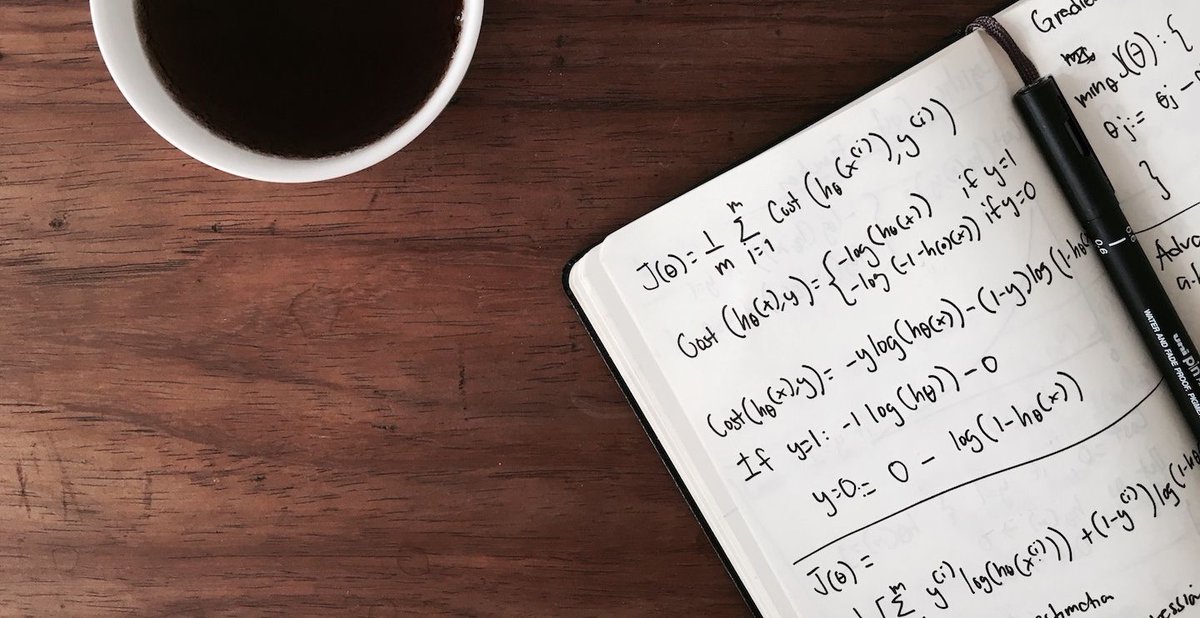 J(θ) = 1/m Σ i=1 m Cost (hθ(x⁽ⁱ⁾), y⁽ⁱ⁾)
Cost (hθ(x), y) = { -log(hθ(x)) if y=1
-log (-1-h(θ)(x)) if y=0
Cost(hθ(x), y) = -y log(hθ(x)) - (1-y) log (1-hθ
If y=1: -1 log(hθ)) - 0
y=0 := 0 - log(1-hθ(x))
J(θ) =
[Σ m y⁽ⁱ⁾ log(hθ(x⁽ⁱ⁾)) + (1-y⁽ⁱ⁾) log(1-h
minθ J(θ): {
θj := θj -
}
0.6
uni pin
WATER AND FADE PROOF